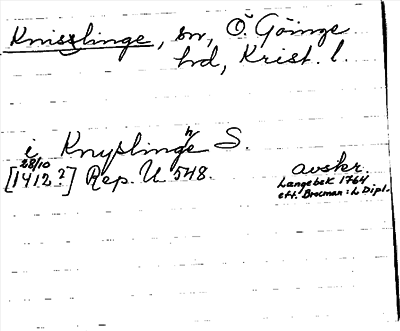 Knisslinge, sn, Ö. Göinge
hd, Krist. l.
i Knyslinge S.
28/10
[1412?] Rep. U 548.
avskr.
Langebek 1764
eft. Brocman: L Dipl.